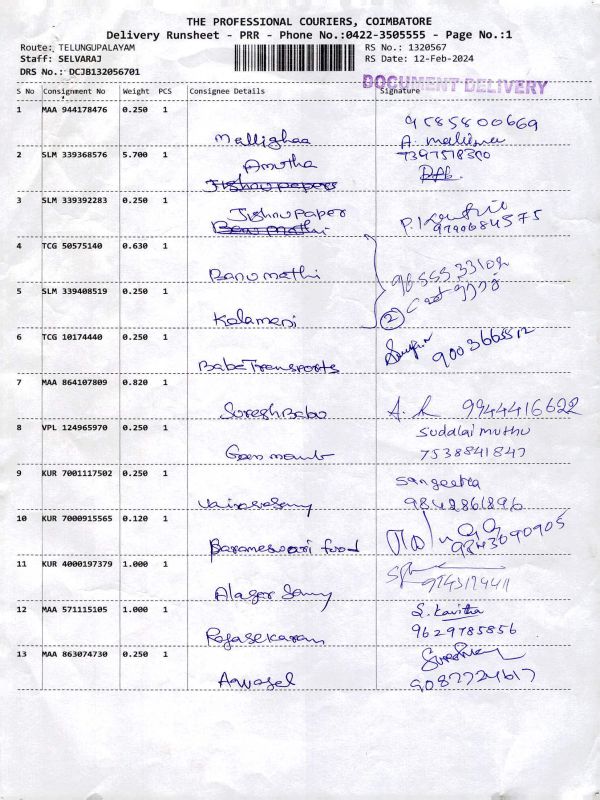 THE PROFESSIONAL COURIERS, COIMBATORE
Delivery Runsheet - PRR - Phone No.:0422-3505555 - Page No.:1
Route: TELUNGUPALAYAM RS No.: 1320567
Staff: SELVARAJ RS Date: 12-Feb-2024
DRS No.: DCJB132056701
DOCUMENT DELIVERY
S No Consignment No Weight PCS Consignee Details Signature
1 MAA 944178476 0.250 1
Mallighaa 9585800669
2 SLM 339368576 5.700 1
Amutha
3 SLM 339392283 0.250 1
Jishnu paper
4 TCG 50575140 0.630 1
Banumathi
5 SLM 339408519 0.250 1
Kalamani 2
6 TCG 10174440 0.250 1
Baba Transports
7 MAA 864107809 0.820 1
Suresh Babu 9944416622
8 VPL 124965970 0.250 1
Suddalai muthu
7538841847
9 KUR 7001117502 0.250 1
Sangeetha
9842861896
10 KUR 7000915565 0.120 1
Barameswari food 9843090905
11 KUR 4000197379 1.000 1
Alagar Samy
12 MAA 571115105 1.000 1
S. Kavitha
Rajasekaran 9629785856
13 MAA 863074730 0.250 1
9087724617